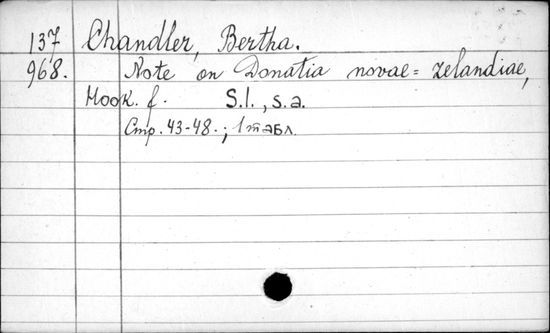 137 Chandler, Bertha.
968. Note on Donatia novae=zelandiae,
Hook. f. S.l., s.a.
Стр. 43-48.; 1 табл.